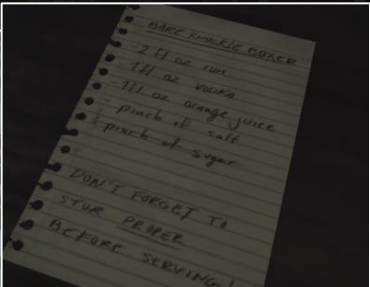 BARE KNUCKLE BOXER
- 2 fl oz rum
- 1 fl oz vodka
- 1 fl oz orange juice
- pinch of salt
- pinch of sugar
DON'T FORGET TO
STUR PROPER
BEFORE SERVING!